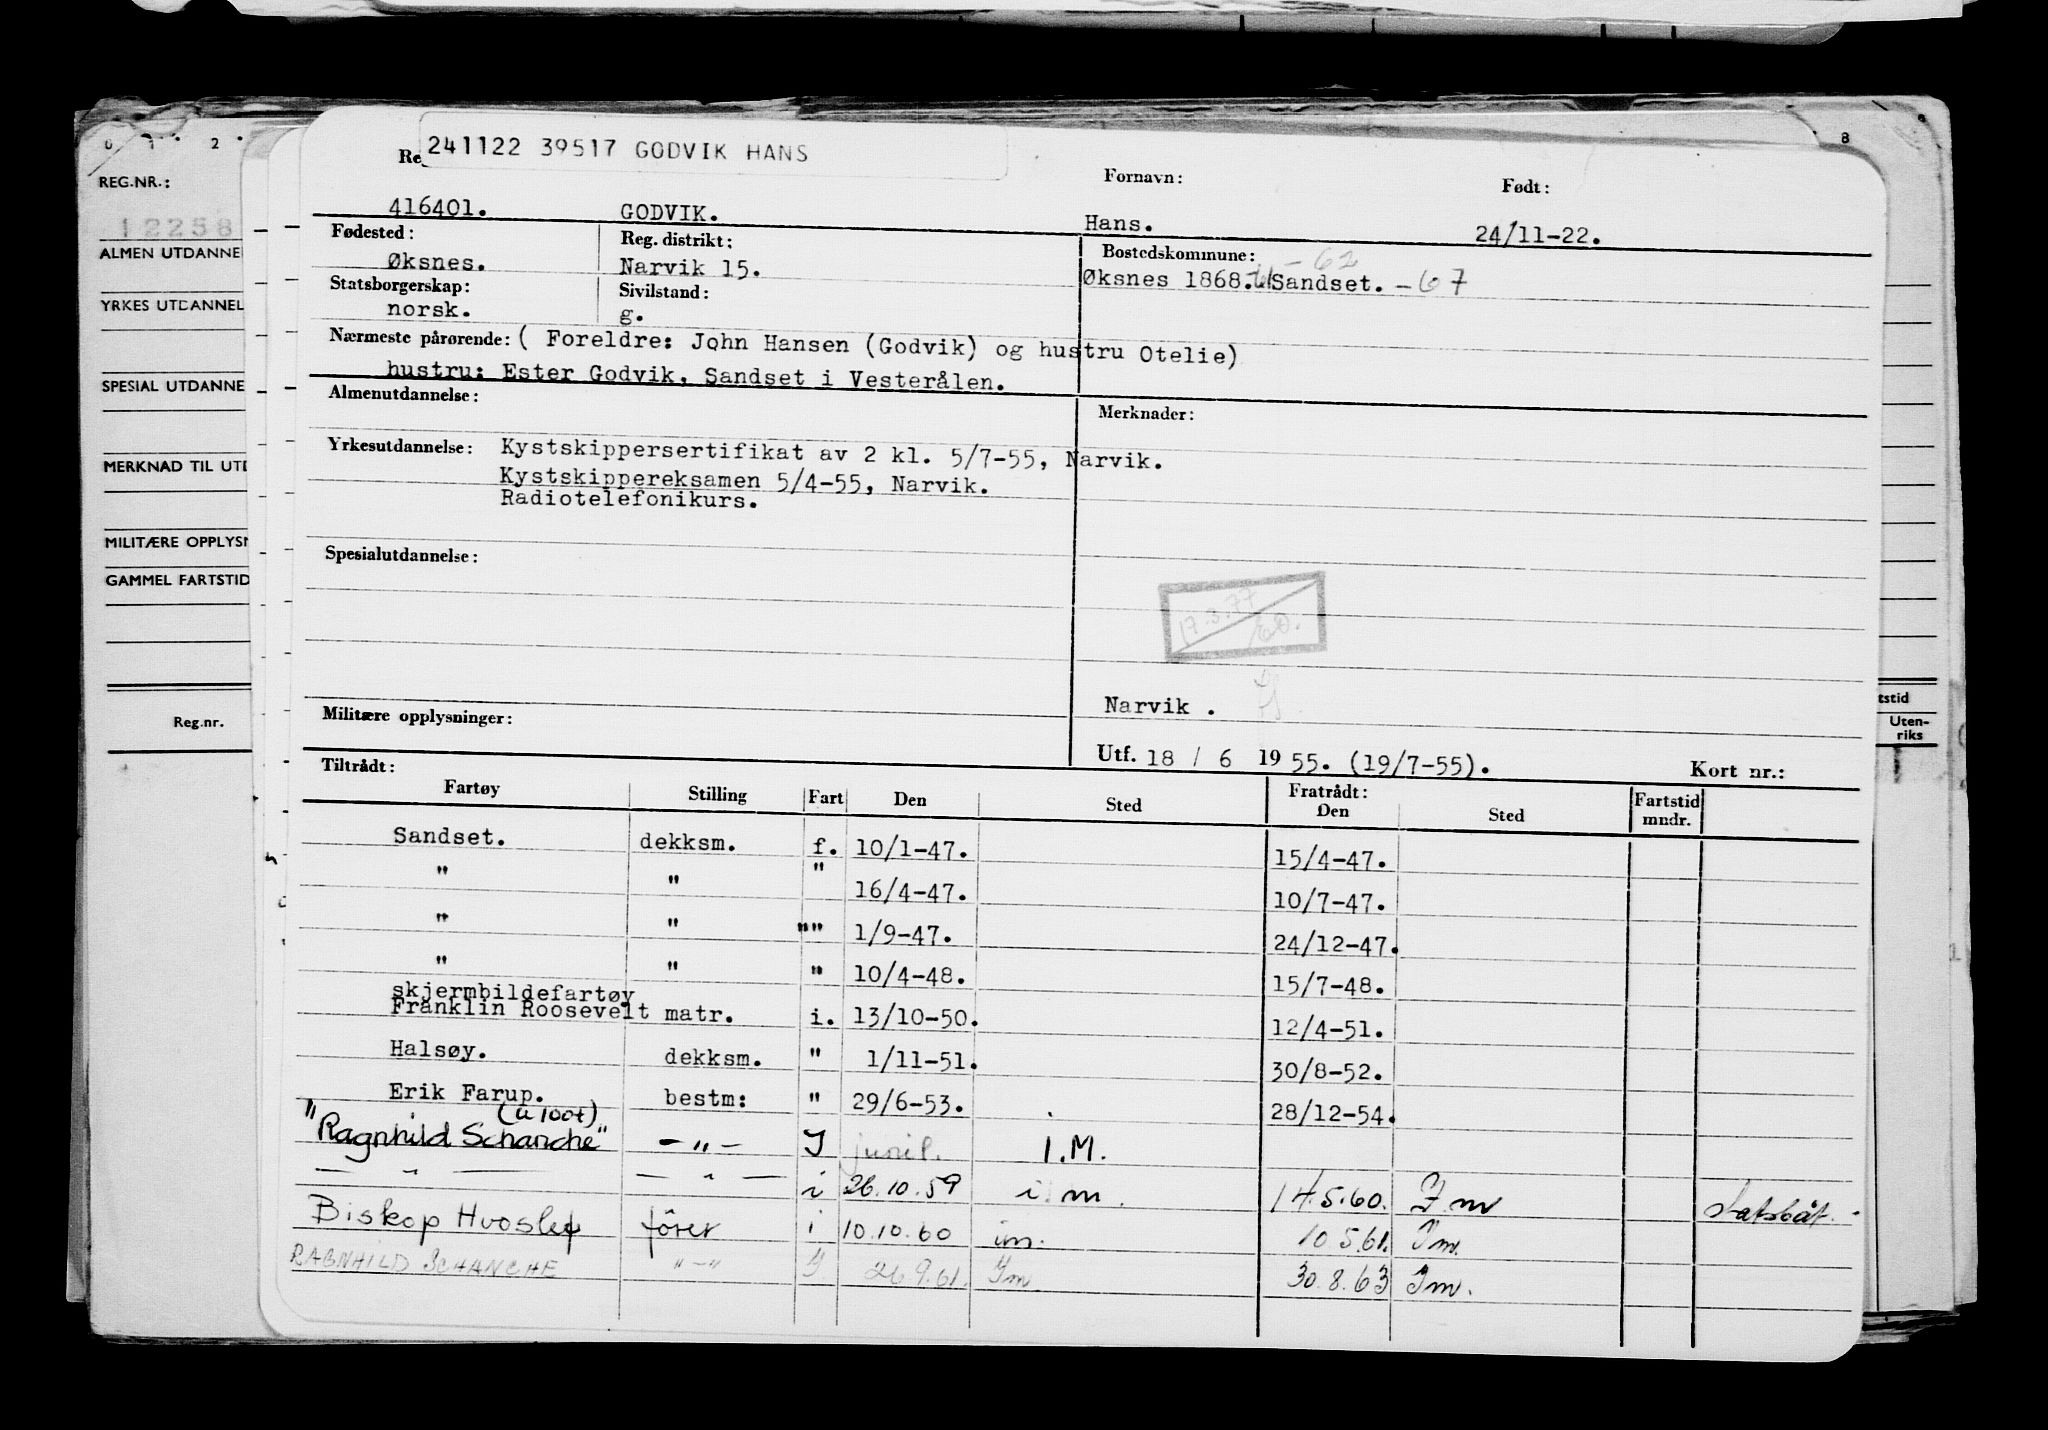 0 1 2 8
241122 39517 GODVIK HANS
REG.NR.: Fornavn: Født:
12258 416401. GODVIK. Hans. 24/11-22.
Fødested: Reg. distrikt: Bostedskommune: -62
ALMEN UTDANNE Øksnes. Narvik 15. Øksnes 1868. Sandset. -67
Statsborgerskap: Sivilstand:
YRKES UTDANNEL norsk. g.
Nærmeste pårørende: ( Foreldre: John Hansen (Godvik) og hustru Otelie)
SPESIAL UTDANNE hustru: Ester Godvik, Sandset i Vesterålen.
Almenutdannelse: Merknader:
MERKNAD TIL UTD Yrkesutdannelse: Kystskippersertifikat av 2 kl. 5/7-55, Narvik.
Kystskippereksamen 5/4-55, Narvik.
Radiotelefonikurs.
MILITÆRE OPPLYSN Spesialutdannelse:
GAMMEL FARTSTID
17.3.77
Narvik .
Reg.nr. Militære opplysninger: tstid
Uten-
riks
Utf. 18 / 6 19 55. (19/7-55). Kort nr.:
Tiltrådt: Fratrådt:
Fartøy Stilling Fart Den Sted Den Sted Fartstid mndr.
Sandset. dekksm. f. 10/1-47. 15/4-47.
" " " 16/4-47. 10/7-47.
" " "" 1/9-47. 24/12-47.
" " " 10/4-48. 15/7-48.
skjermbildefartøy
Franklin Roosevelt matr. i. 13/10-50. 12/4-51.
Halsøy. dekksm. " 1/11-51. 30/8-52.
Erik Farup. bestm: " 29/6-53. 28/12-54.
(u 100t)
"Ragnhild Schanche" -"- I I.M.
— " — — " — i 26.10.59 i m. 14.5.60. I m
Biskop Hvoslef fører i 10.10.60 im. 10.5.61. Im.
RAGNHILD SCHANCHE "-" I 26.9.61. Im 30.8.63 Im.